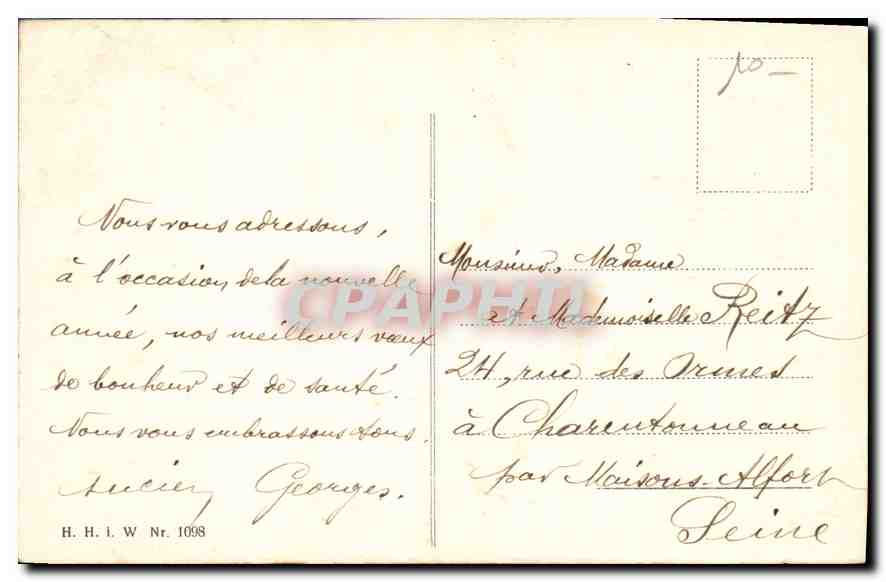 10 —
Nous vous adressons,
à l'occasion de la nouvelle
année, nos meilleurs vœux
de bonheur et de santé.
Nous vous embrassons tous.
Lucien Georges.
H. H. i. W Nr. 1098
Monsieur, Madame
et Mademoiselle Reitz
24, rue des Ormes
à Charentonneau
par Maisons-Alfort
Seine
CPAPHIL